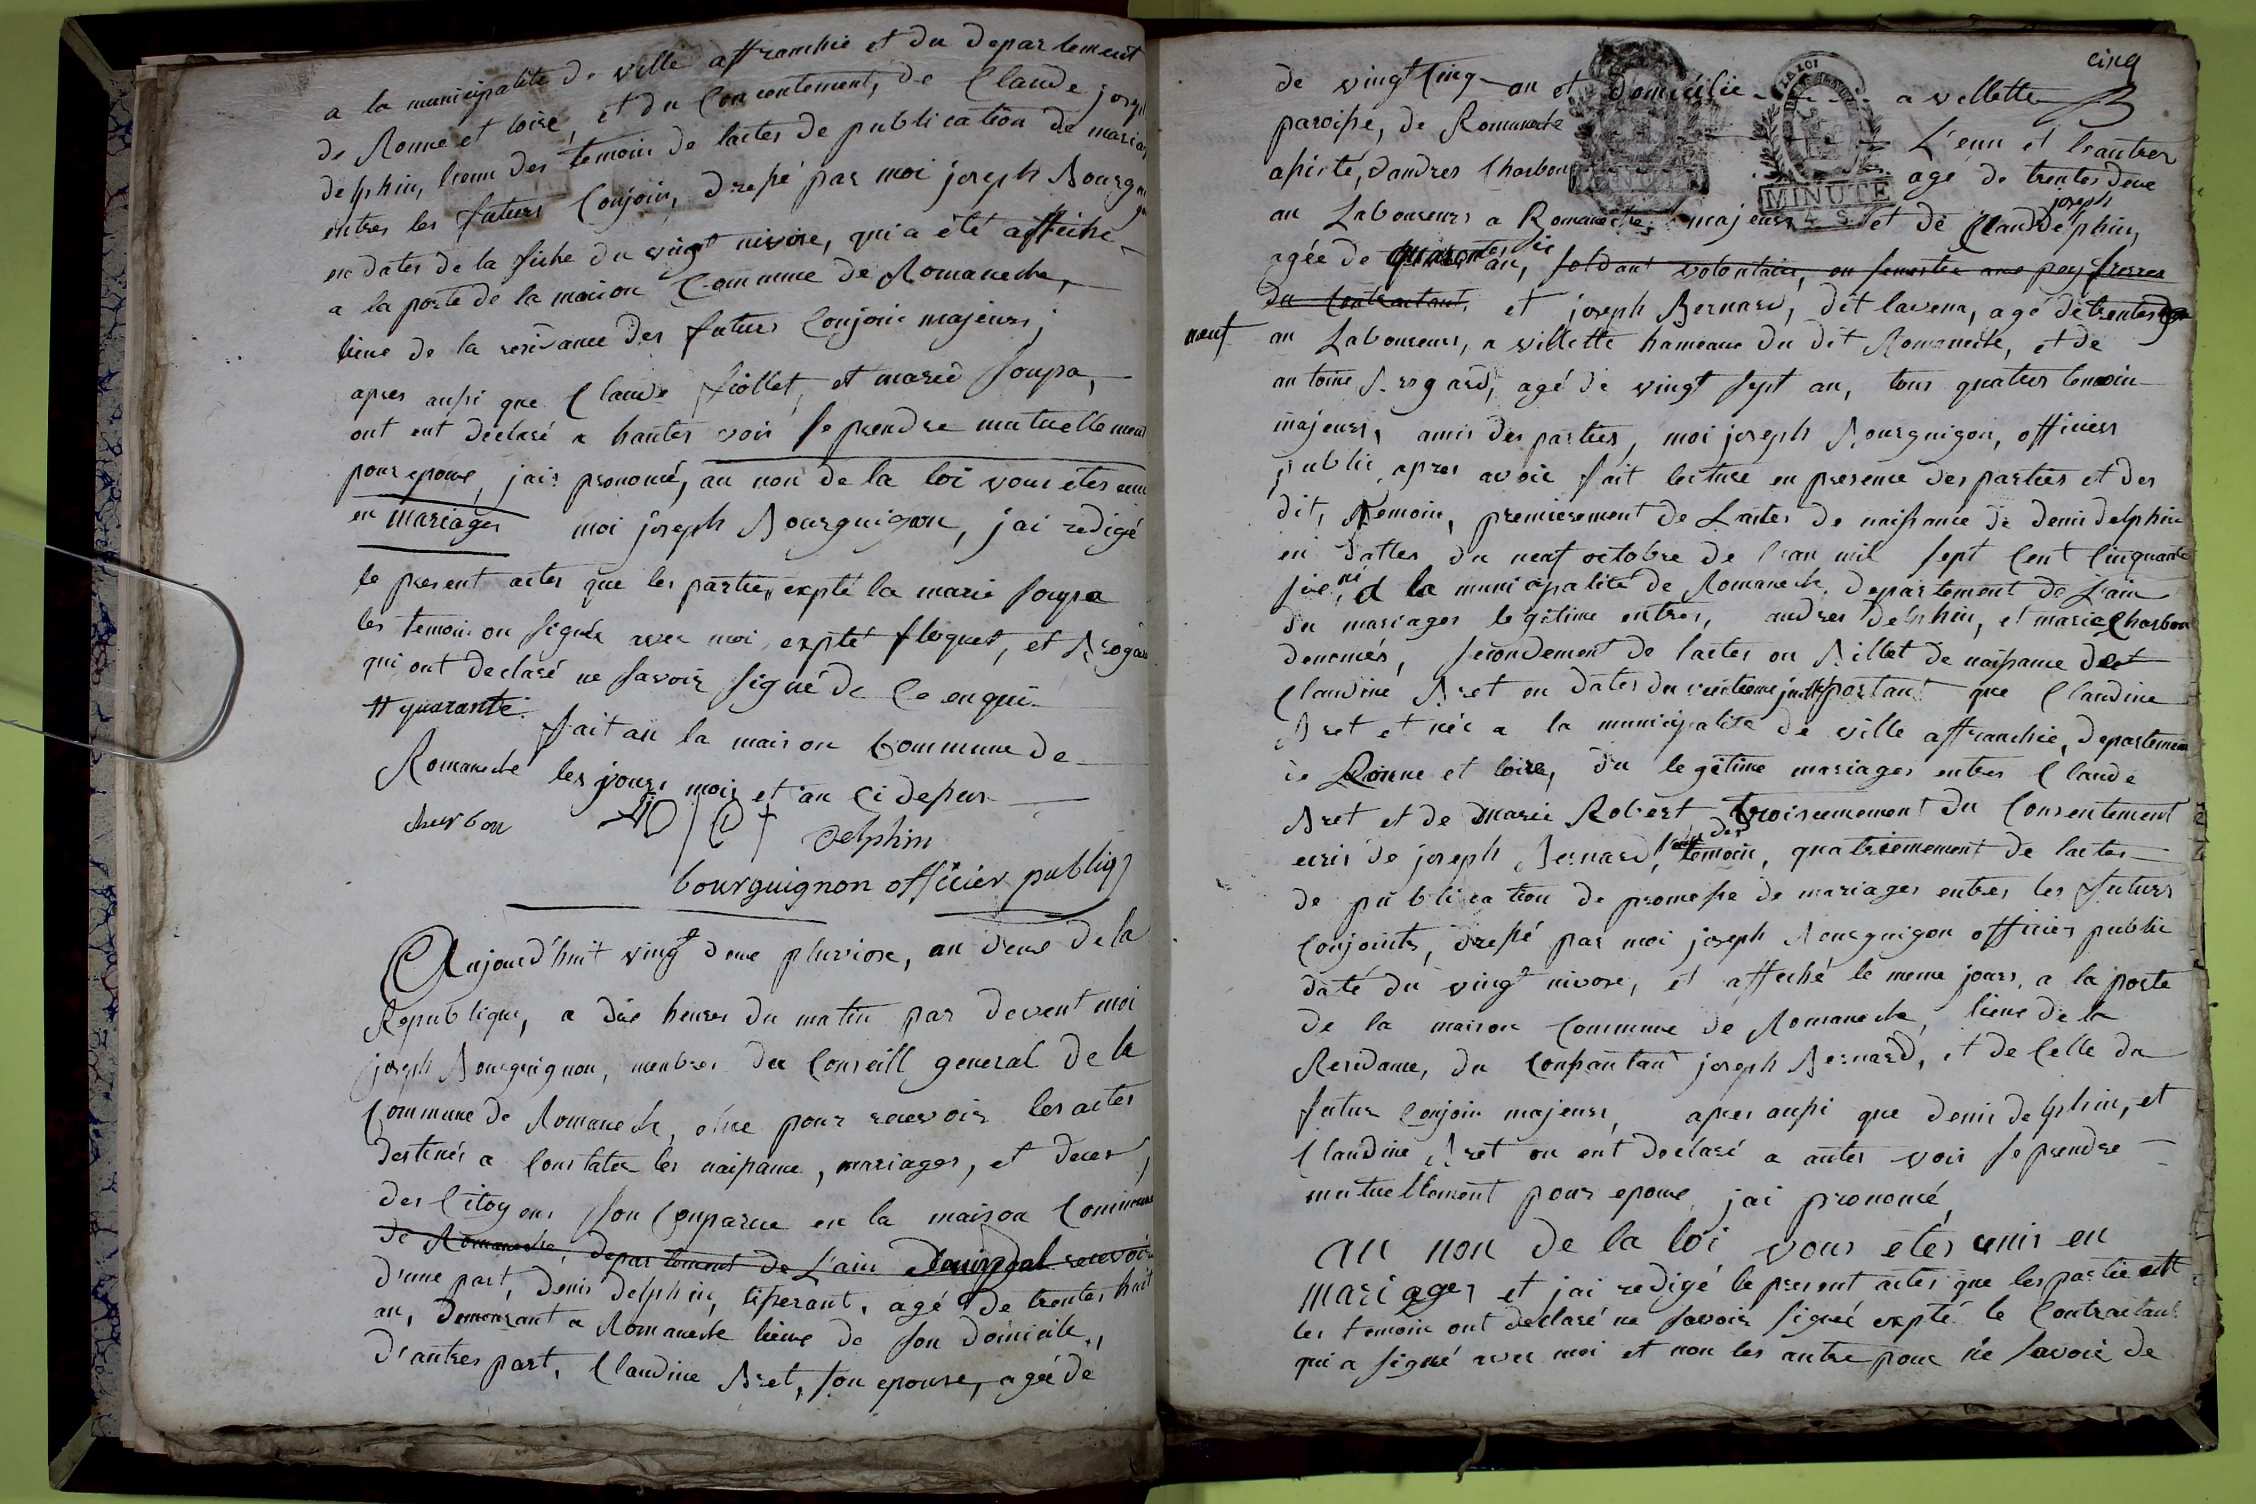 a la municipalite de ville affranchie et du departement
de Ronne et loire, et du Concentement, de Claude joseph
delphin, l'enn des temoin de lactes de publication de mariag
entres les futurs Conjoin, dressé par moi joseph Bourguig
en dates de la fiche du vingt nivose, qui a été affiche
a la porte de la maison Commune de Romaneche,
lieue de la residance des futurs Conjoin majeurs;
apres aussi que Claude fiollet, et marie soupa,
ont ent déclaré a hautes voix se prendre mutuellement
pour epoux, jai prononcé, au non de la loi vous etes unis
en mariages moi joseph Bourguignon, j'ai redigé
le present actes que les parties, expté la marie soupa
les temoin on signés avec moi, expté floquet, et Brogard
qui ont declaré ne savoir signé de ce enqui
# quarante. fait an la maison Commune de
Romaneche les jours mois et an ci dessus
charbon
delphin
bourguignon officier public
Aujourd'huit vingt deux pluviose, an deux de la
Republique, a dix heures du matin par devent moi
joseph Bourguignon, menbres du Conseill general de la
Commune de Romaneche, elue pour recevoir les actes
destinés a Constater les naissance, mariages, et deces,
des Citoyens son Conparue en la maison Commune
de Romaneche, departement de L'ain
d'une part, denis delphin, tisserant, agé de trentes huit
an, demeurant a Romaneche lieux de son domicile,
d'autres part, Claudine Bret, son epouse, agée de
cinq
de vingt Cinq an et domicilie a villette
paroisse, de Romaneche L'enn et l'autres
asisté, d'andres Charbon agé de trentes deux
joseph
an Laboureurs a Romaneche, majeurs et de Claud delphin,
agée de quarentes six an, soldant volontaire, en
du Contractant, et joseph Bernard, dit lavena, agé de trentes
neuf an Laboureurs, a villette hameaux du dit Romaneche, et de
antoine Brogard, agé de vingt sept an, tous quatres temoin
majeurs, amis des parties, moi joseph Bourguigon, officiers
public, apres avoir fait lecture en presence des parties et des
dit, temoin, premierement de L'actes de naissance de denis delphin
en dattes du neuf octobre de l'an mil sept Cent Cinquante
six, né a la municipalité de Romaneche, departement de L'ain
du mariages legitime entres, andres delphin, et marie Charbon
denomés, secondement de lactes ou Billet de naissance de
Claudine Bret en dates du portant que Claudine
Bret et née a la municipalite de ville affranchie, departement
de Ronne et loire, du legitime mariages entres Claude
Bret et de Marie Robert troisiemement du Consentement
ecris de joseph Bernard, l'enn des temoin, quatriemement de lactes
de publication de promesse de mariages entres les futurs
Conjoints, dressé par moi joseph Bourguigon officier public
daté du vingt nivose, et affiché le meme jours, a la porte
de la maison Commune de Romaneche, lieux de la
Residance, du Consantant joseph Bernard, et de Celle du
futur Conjoin majeurs, apres aussi que denis delphin, et
Claudine Bret on ent declaré a autes voix se prendre
mutuellement pour epoux, jai prononcé,
au non de la loi vous etes unis en
mariages et jai redigé le present actes que les partie et
les temoin ont declaré ne savoir signé expté le Contractant
qui a signé avec moi et non les autre pour ne savoir de
LA LOI
MINUTE
4 S